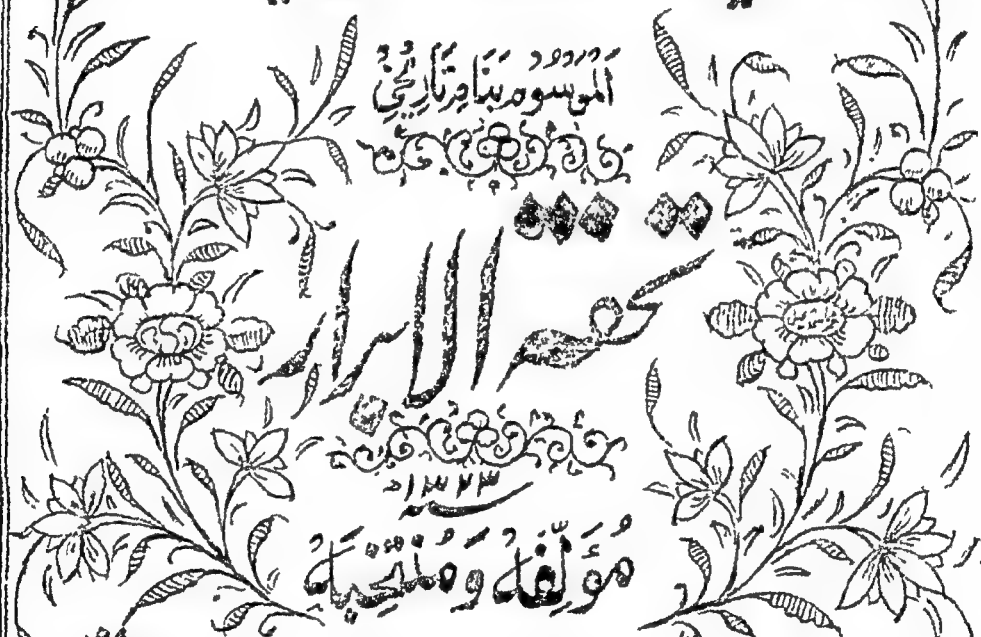 اَلْمَوْسُوْمُ بِنَامِ تَارِيْخِيْ
تحفة الابرار
۱۳۲۳ھ
مُؤَلِّفُهُ وَ